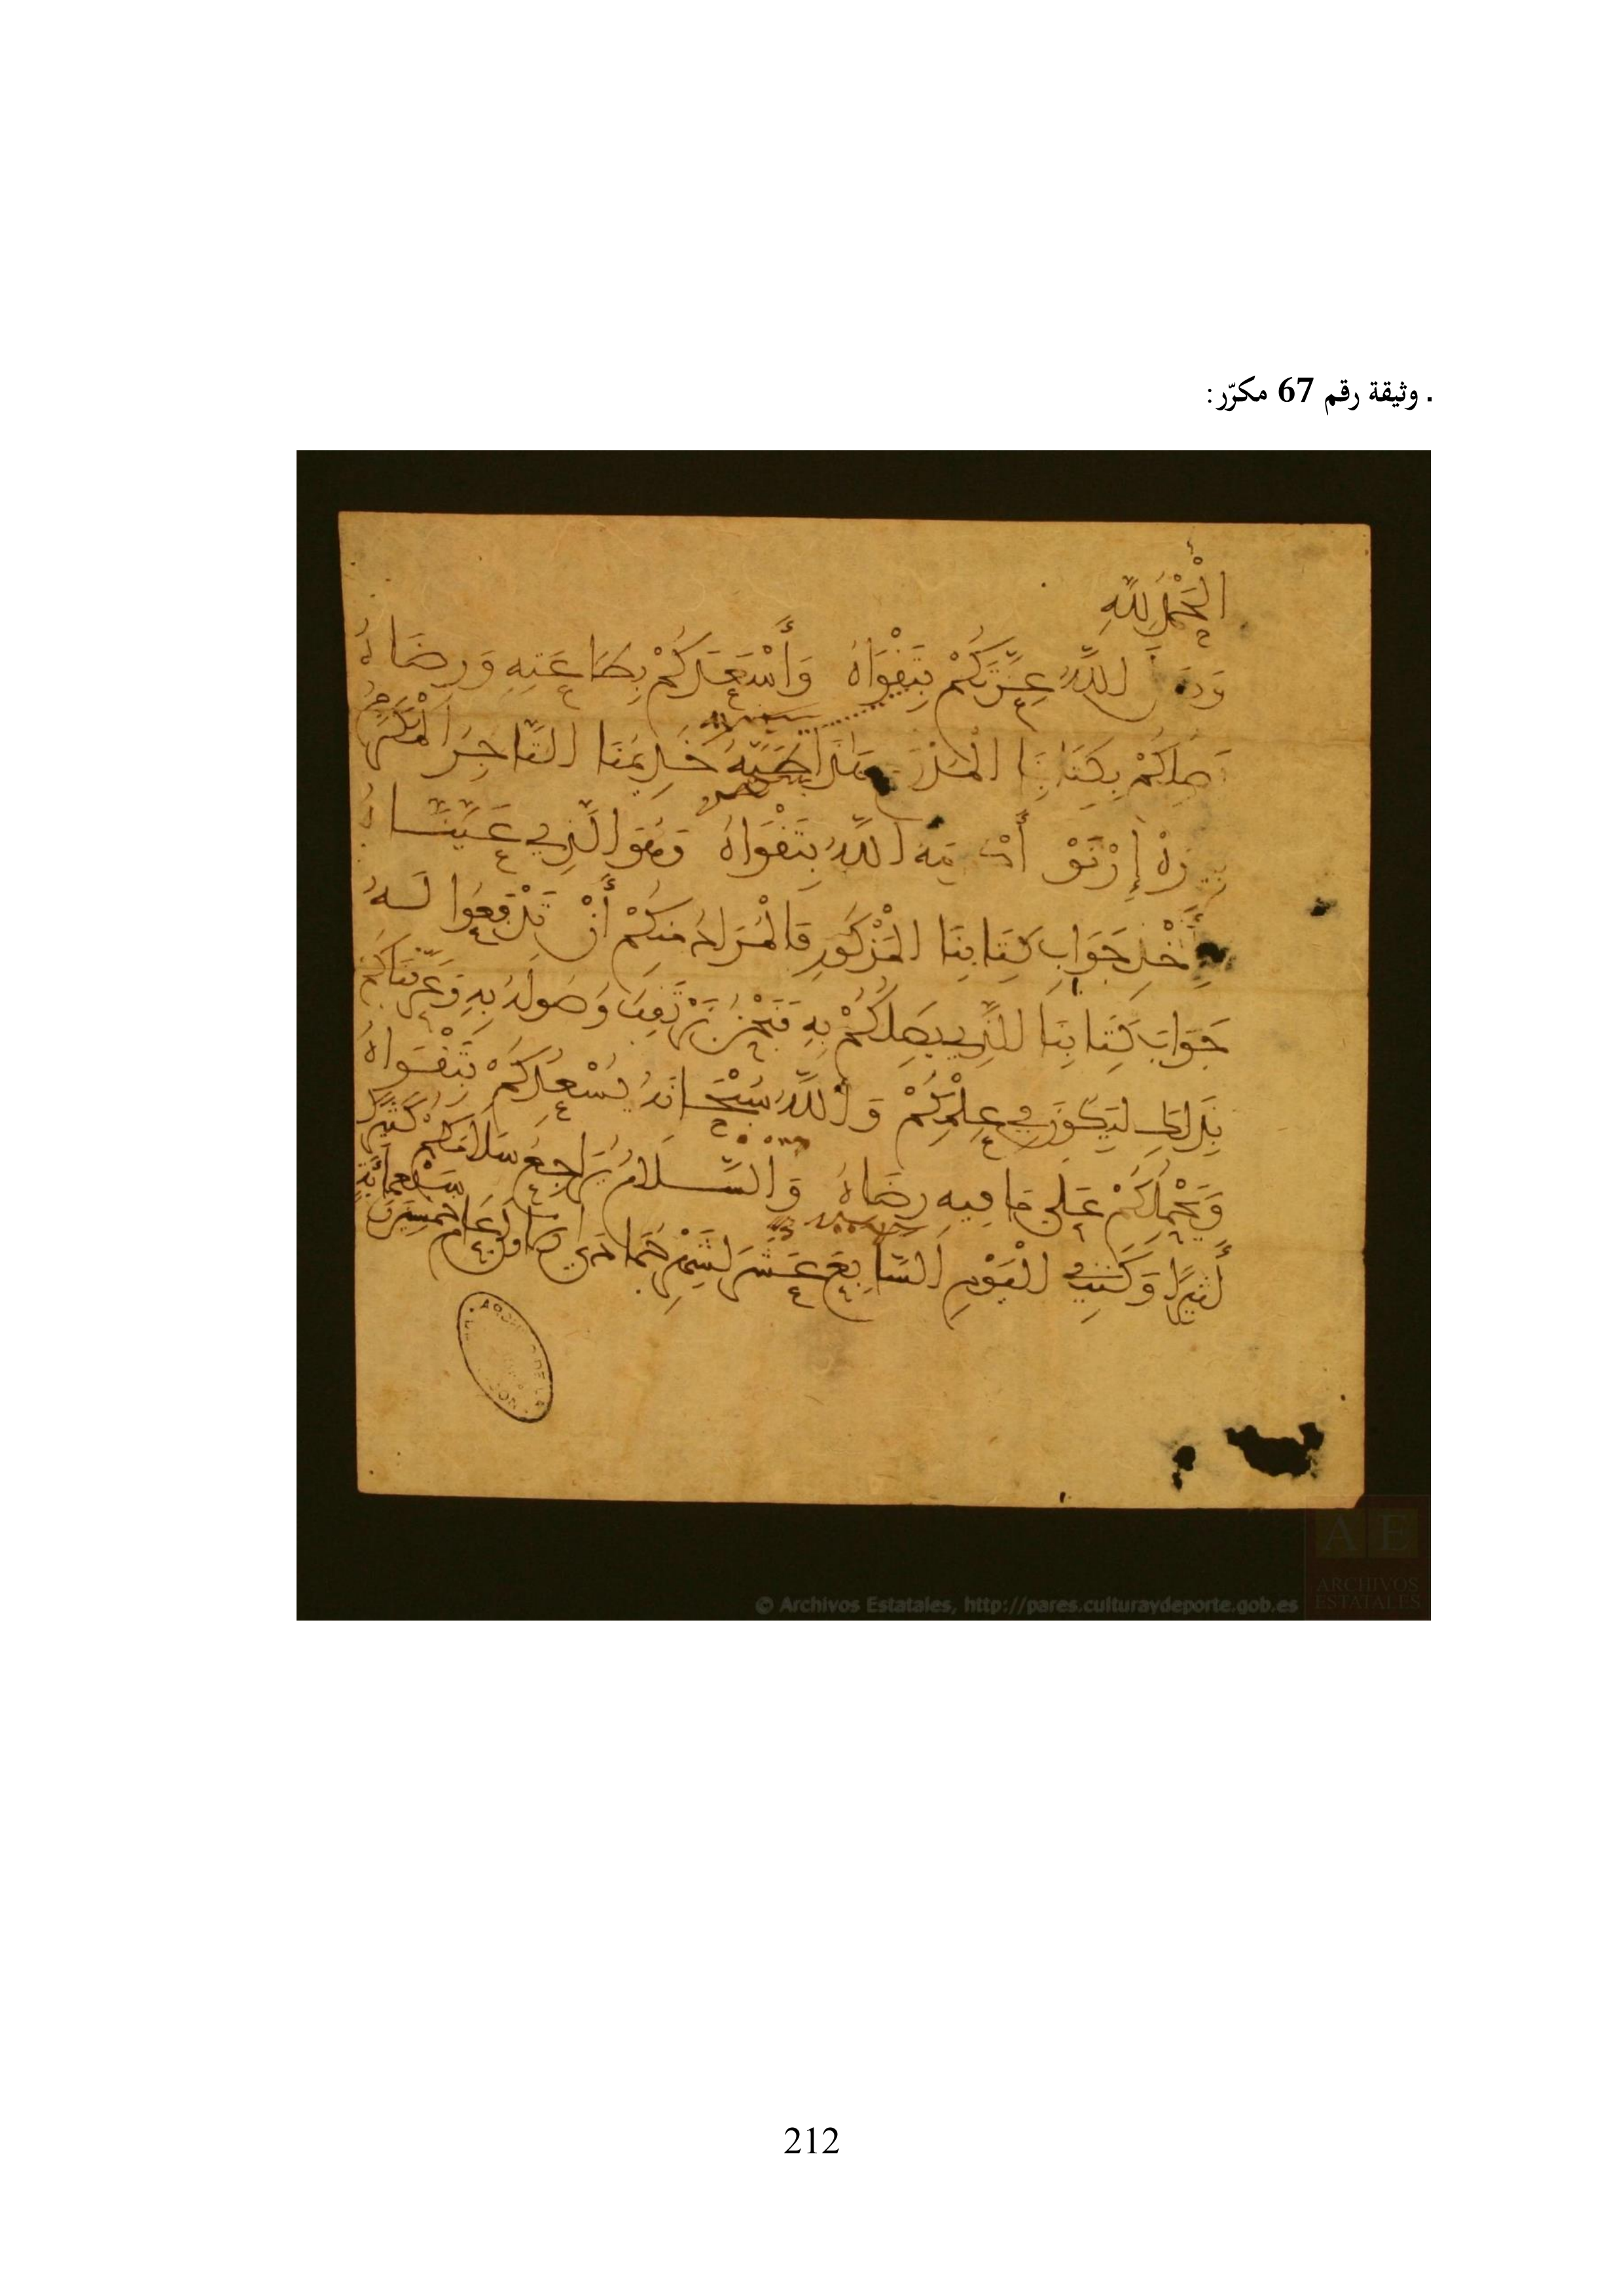 . وثيقة رقم 67 مكرّر:
الْحَمْدُ لِلَّهِ
اللَّهُ عِزَّتَكُمْ بِتَقْوَاهُ وَأَسْعَدَكُمْ بِطَاعَتِهِ وَرِضَاهُ
بِكِتَابِنَا خَدِيمُنَا التَّاجِرُ الْمُكَرَّمُ
اللَّهُ بِتَقْوَاهُ وَهُوَ الَّذِي عَيَّنَّاهُ
لِأَخْذِ جَوَابِ كِتَابِنَا الْمَذْكُورِ فَالْمُرَادُ مِنكُمْ أَنْ تَدْفَعُوا لَهُ
جَوَابَ كِتَابِنَا الَّذِي يَصِلُكُمْ بِهِ فَنَحْنُ نَرْتَقِبُ وُصُولَهُ بِهِ وَعَرَّفْنَاكُمْ
بِذَلِكَ لِيَكُونَ فِي عِلْمِكُمْ وَاللَّهُ سُبْحَانَهُ يُسْعِدُكُمْ بِتَقْوَاهُ
وَيَحْمِلُكُمْ عَلَى مَا فِيهِ رِضَاهُ وَالسَّلَامُ يُرَاجِعُ سَلَامَكُمْ كَثِيرًا
أَثِيرًا وَكُتِبَ فِي الْيَوْمِ السَّابِعِ عَشَرَ لِشَهْرِ جُمَادَى مِنْ عَامِ خَمْسِينَ وَسَبْعِمِائَةٍ
© Archivos Estatales, http://pares.culturaydeporte.gob.es
AE
ARCHIVOS
ESTATALES
212